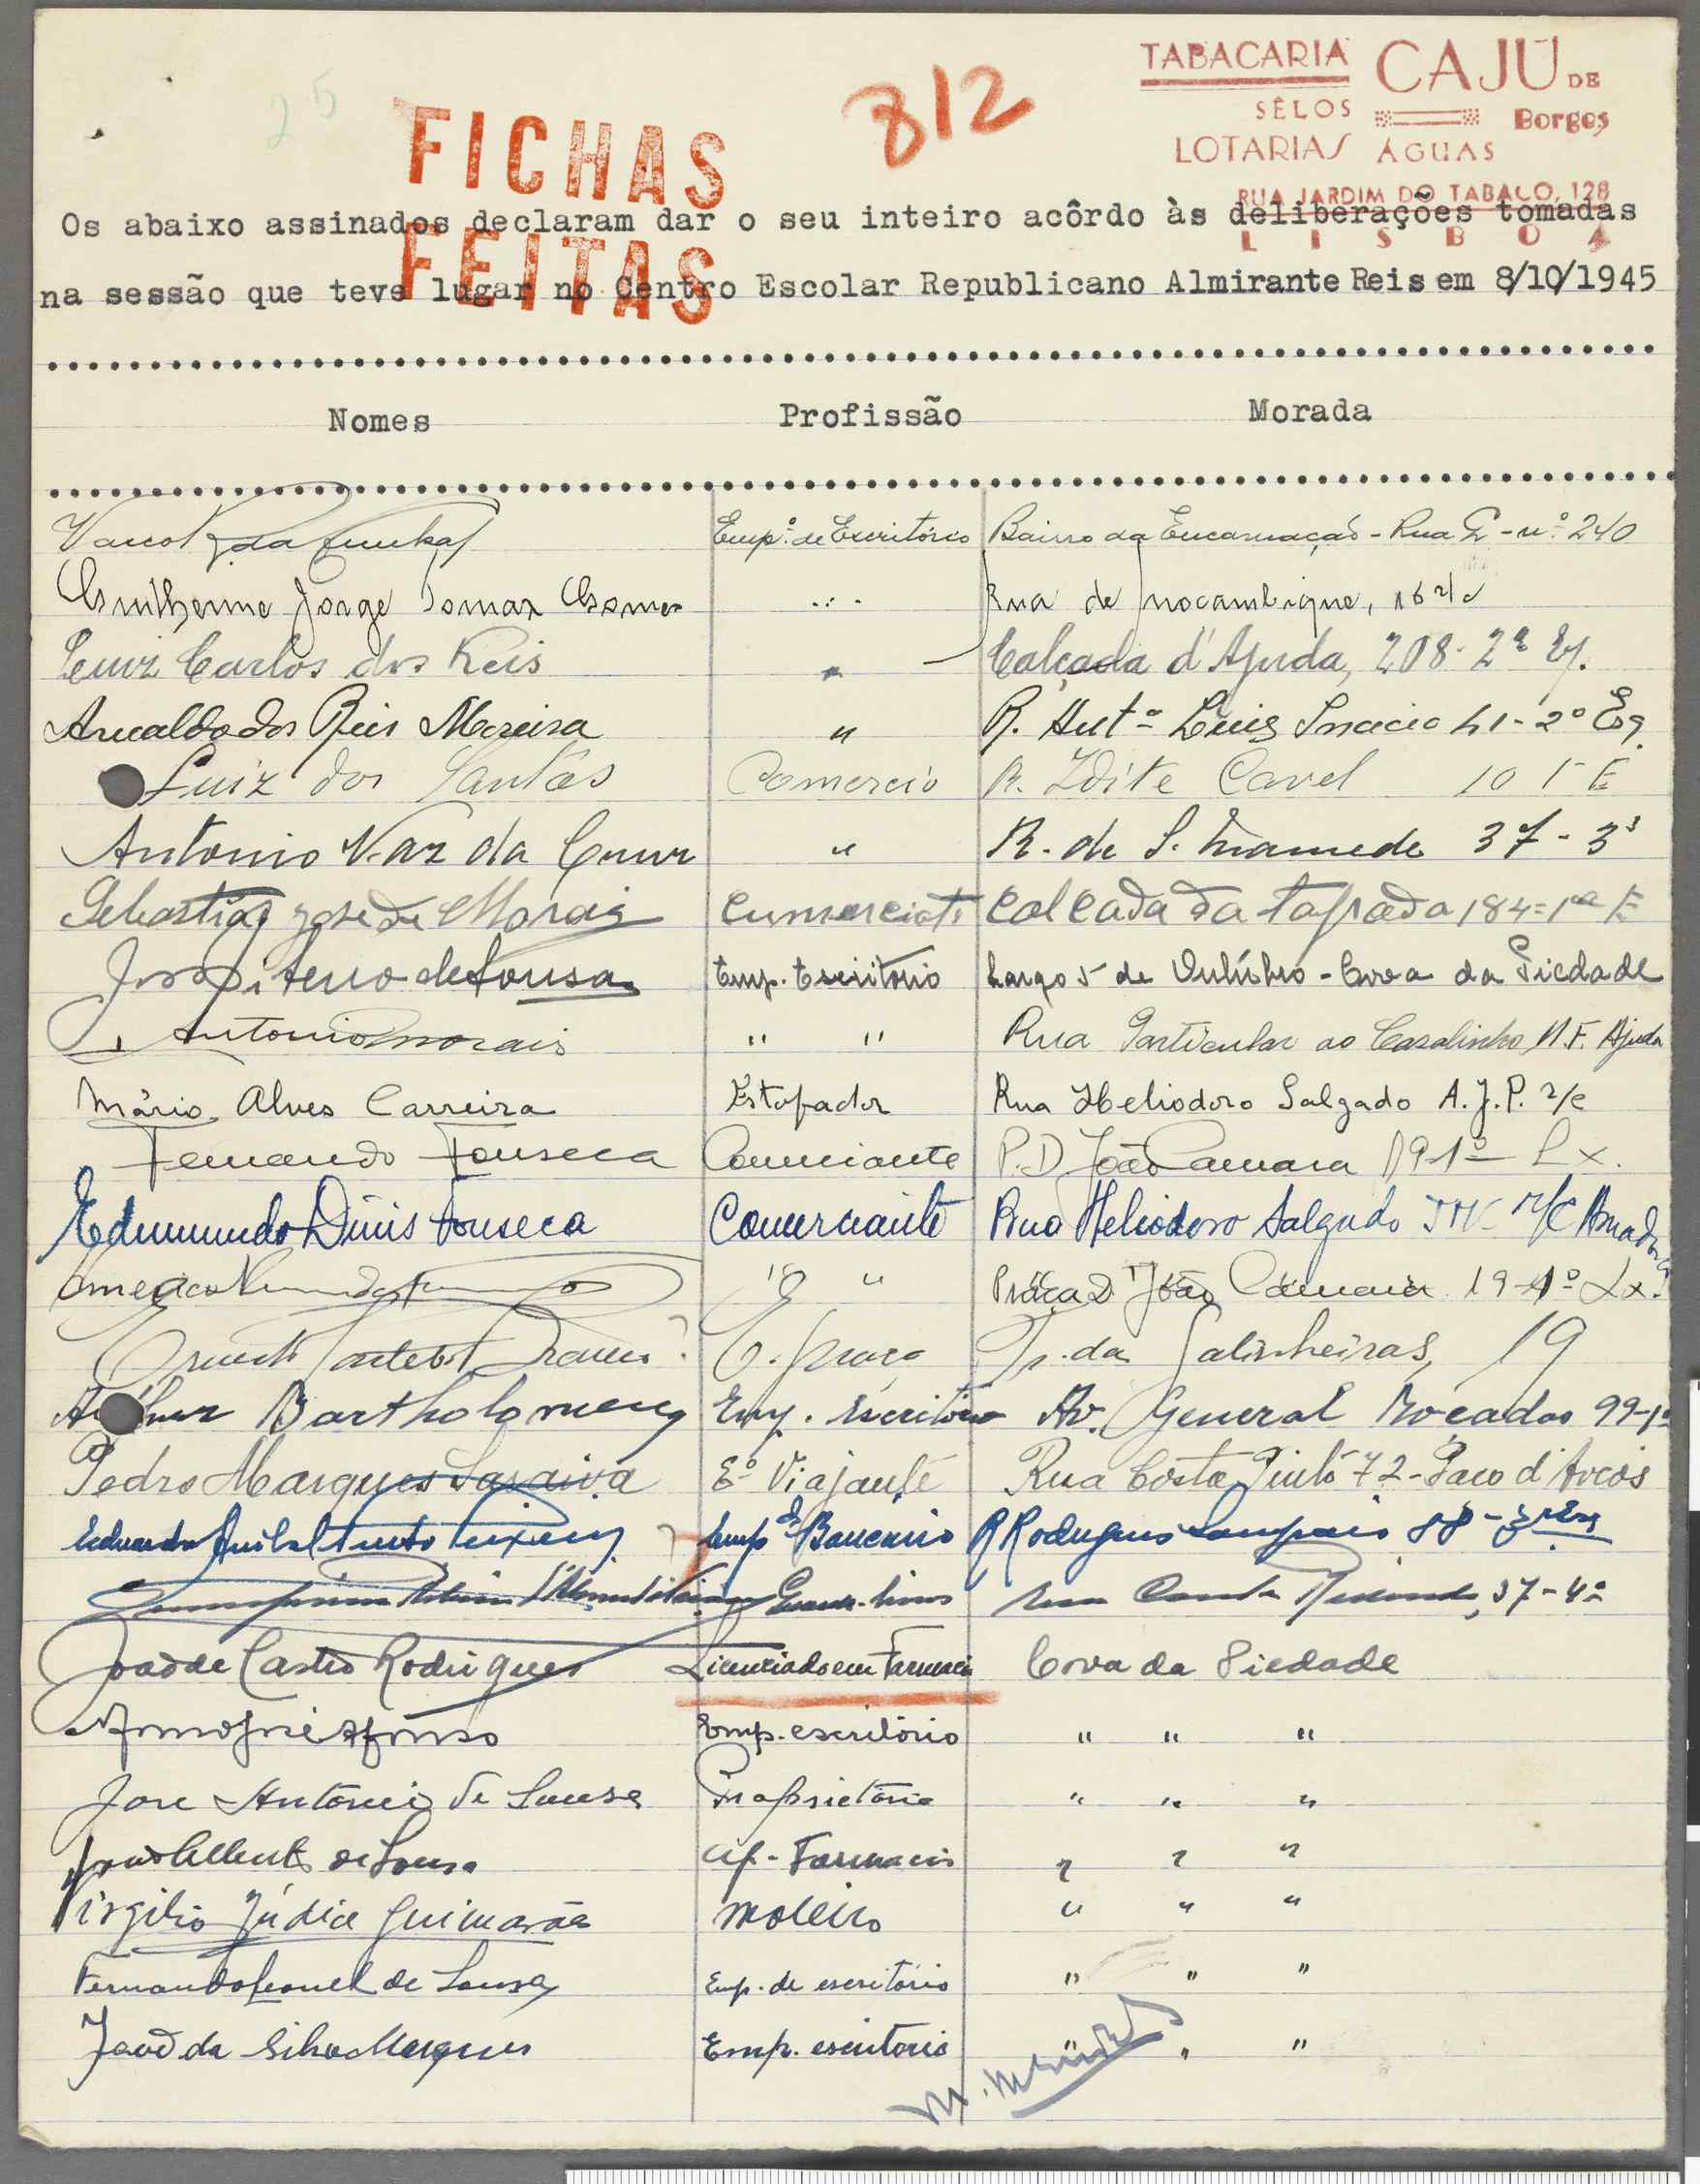 25
812
TABACARIA CAJÚ DE
SÊLOS Borges
LOTARIAS ÁGUAS
RUA JARDIM DO TABACO, 128
LISBOA
FICHAS
FEITAS
Os abaixo assinados declaram dar o seu inteiro acôrdo às deliberações tomadas
na sessão que teve lugar no Centro Escolar Republicano Almirante Reis em 8/10/1945
Nomes Profissão Morada
Empº. de Escritório Bairro da Encarnação - Rua G - nº 240
Guilherme Jorge Tomaz Gomes " Rua de Moçambique, 16 r/c
Luiz Carlos dos Reis " Calçada d'Ajuda, 208-2º Eq.
Arnaldo dos Reis Moreira " R. Antº Luis Inacio 41-2º Eq.
Luiz dos Santos Comercio R. Idite Cavel 10 1 E
Antonio Vaz da Cruz " R. de S. Mamede 37-3º
Sebastião José de Morais Cumerciate Calcada da tapada 184=1º E
de Sousa Emp. Escritorio Largo 5 de Outubro - Cova da Piedade
Antonio Morais " " Rua Particular ao Casalinho N.F. Ajuda
Mário Alves Carreira Estofador Rua Heliodoro Salgado A.J.P. r/c
Fernando Fonseca Comerciante P. D. João Camara 19-1º Lx.
Edmundo Dinis Fonseca Comerciante Rua Heliodoro Salgado r/c Amadora
Americo " " Praça D. João Camara 19-1º Lx.
Tr. da Galinheiras, 19
Arthur Bartholomeu Emp. Escritório Av. General Rocadas 99-1º
Pedro Marques Saraiva Eº Viajante Rua Costa Pinto 72 - Paco d'Arcos
Eduardo Anibal Empº Bancário R Rodrigues Sampaio 88-3º Esq
Guarda-livros Rua Conde Redondo, 37-4º
João de Castro Rodrigues Licenciado em Farmacia Cova da Piedade
Afonso Emp. escritório " " "
Jose Antonio de Sousa Proprietário " " "
de Sousa Farmacia " " "
Virgilio Júdice Guimarães Moleiro " " "
Fernando Leonel de Sousa Emp. de escritório " " "
João da Silva Marques Emp. escritorio " " "